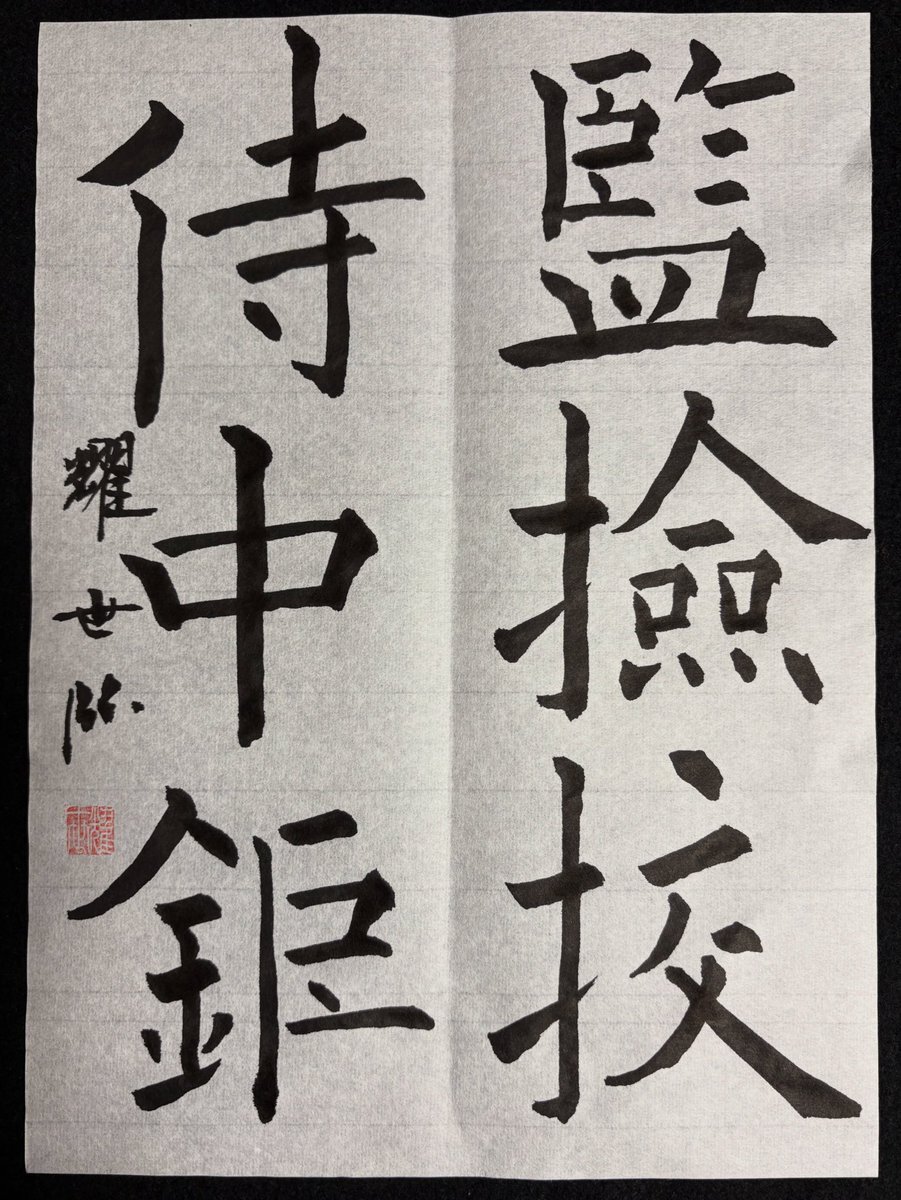 監撿挍
侍中鉅
耀世臨